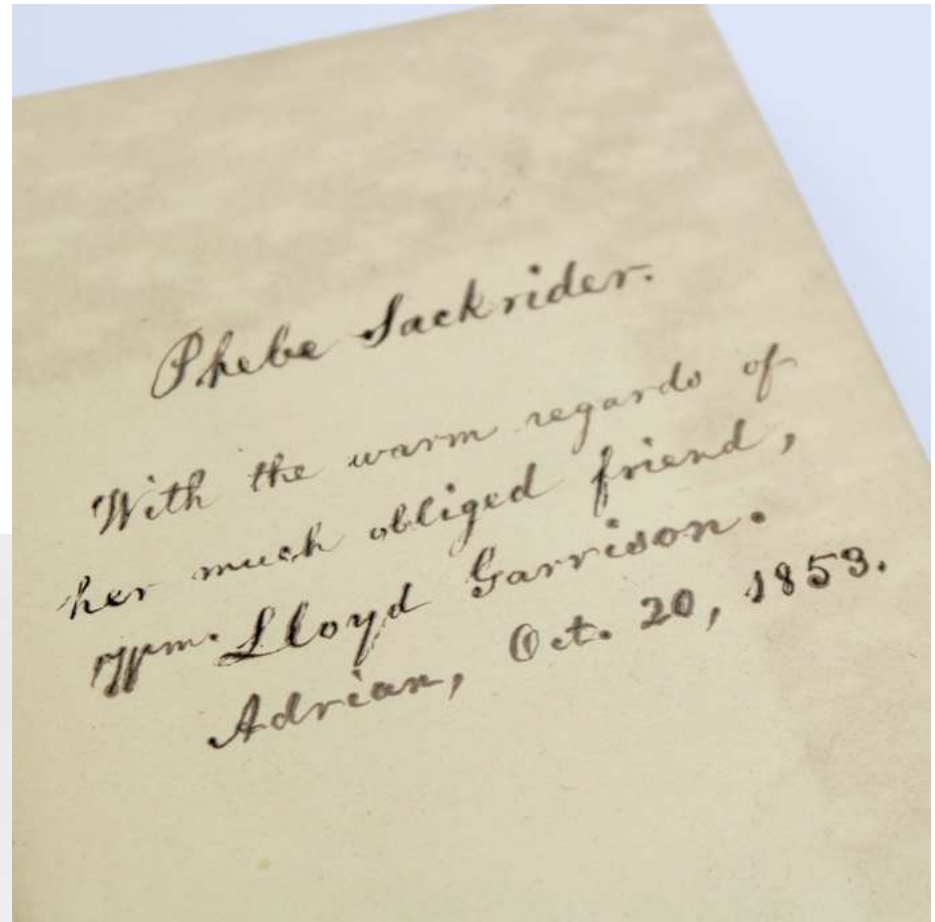 Phebe Sackrider.
With the warm regards of
her much obliged friend,
Wm. Lloyd Garrison.
Adrian, Oct. 20, 1853.